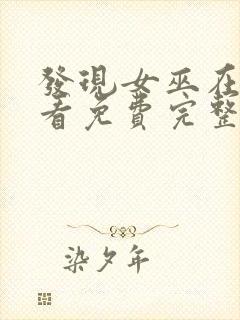 發現女巫在
看免費完整
染夕年